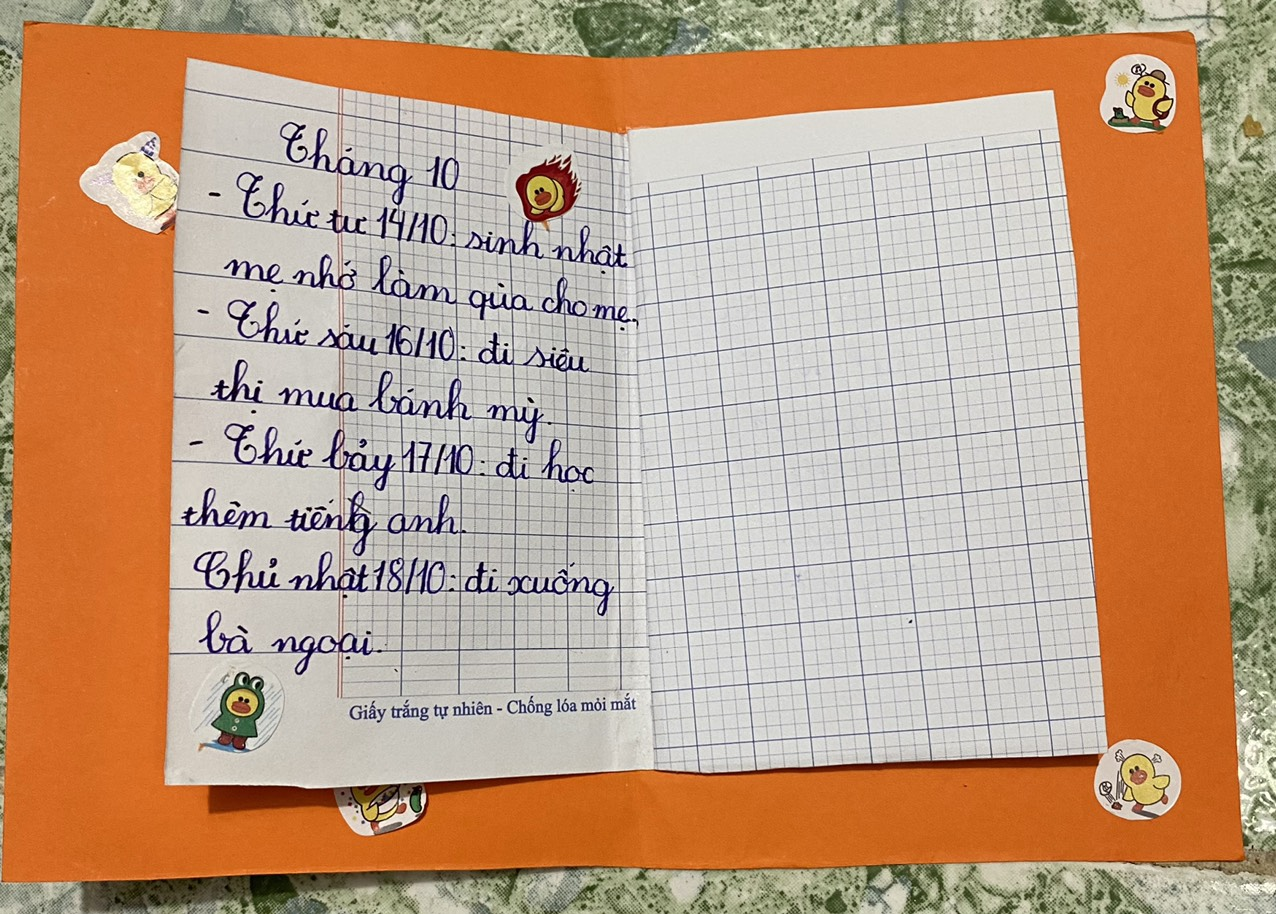 Tháng 10
- Thứ tư 14/10: sinh nhật
mẹ nhớ làm qùa cho mẹ.
- Thứ sáu 16/10: đi siêu
thị mua bánh mỳ.
- Thứ bảy 17/10: đi học
thêm tiếng anh.
Chủ nhật 18/10: đi xuống
bà ngoại.
Giấy trắng tự nhiên - Chống lóa mỏi mắt